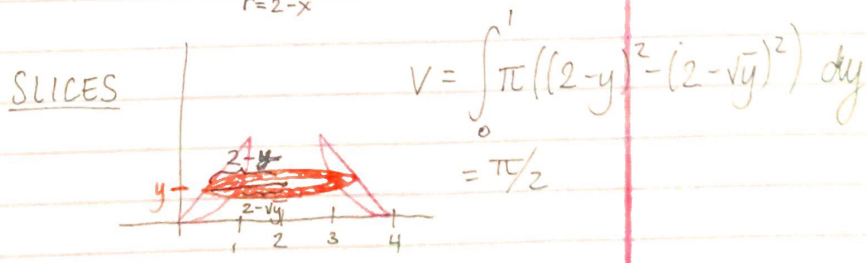 r=2-x
SLICES
V = ∫₀¹ π((2-y)²-(2-√y)²) dy
= π/2
2-y
y
2-√y
1 2 3 4